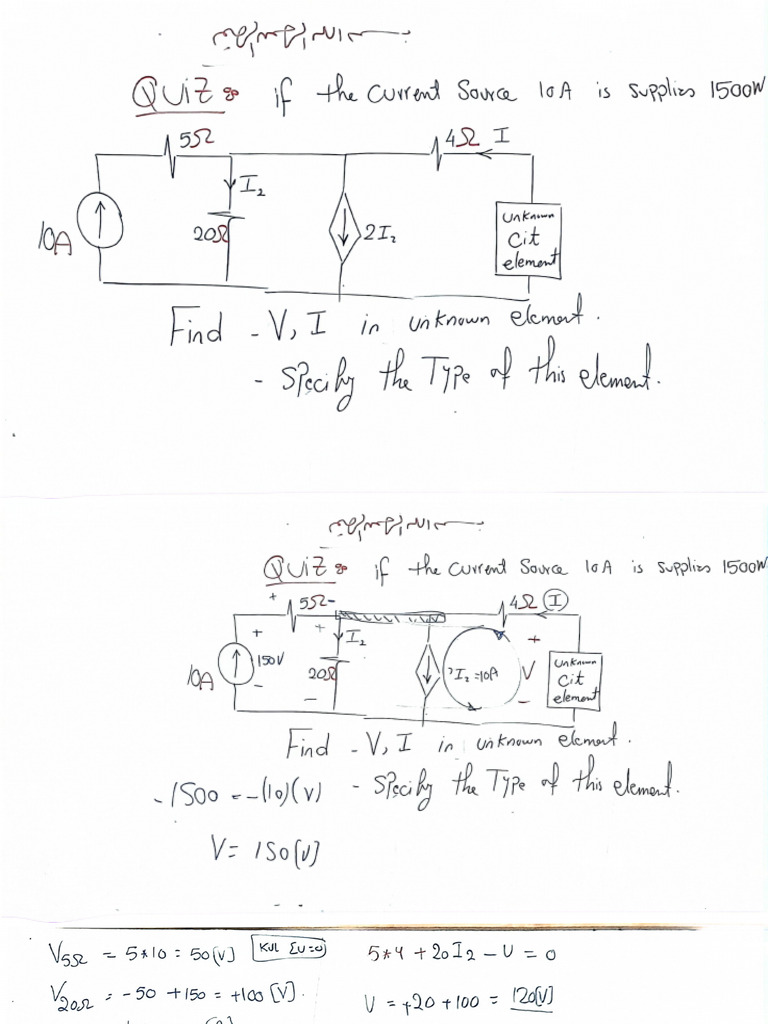 QUIZ: if the current Source 10A is supplies 1500W
5Ω
4Ω I
I₂
10A
20Ω
2I₂
unknown
cit
element
Find - V, I in unknown element.
- Specify the Type of this element.
QUIZ: if the current Source 10A is supplies 1500W
+ 5Ω -
4Ω I
+ + I₂ +
10A 150V 20Ω 2I₂ = 10A V
- - -
unknown
cit
element
Find - V, I in unknown element.
-1500 = -(10)(V) - Specify the Type of this element.
V = 150[V]
V5Ω = 5*10 = 50[V] KVL ΣU=0 5*4 + 20I2 - U = 0
V20Ω = -50 + 150 = +100 [V]. U = +20 + 100 = 120[V]